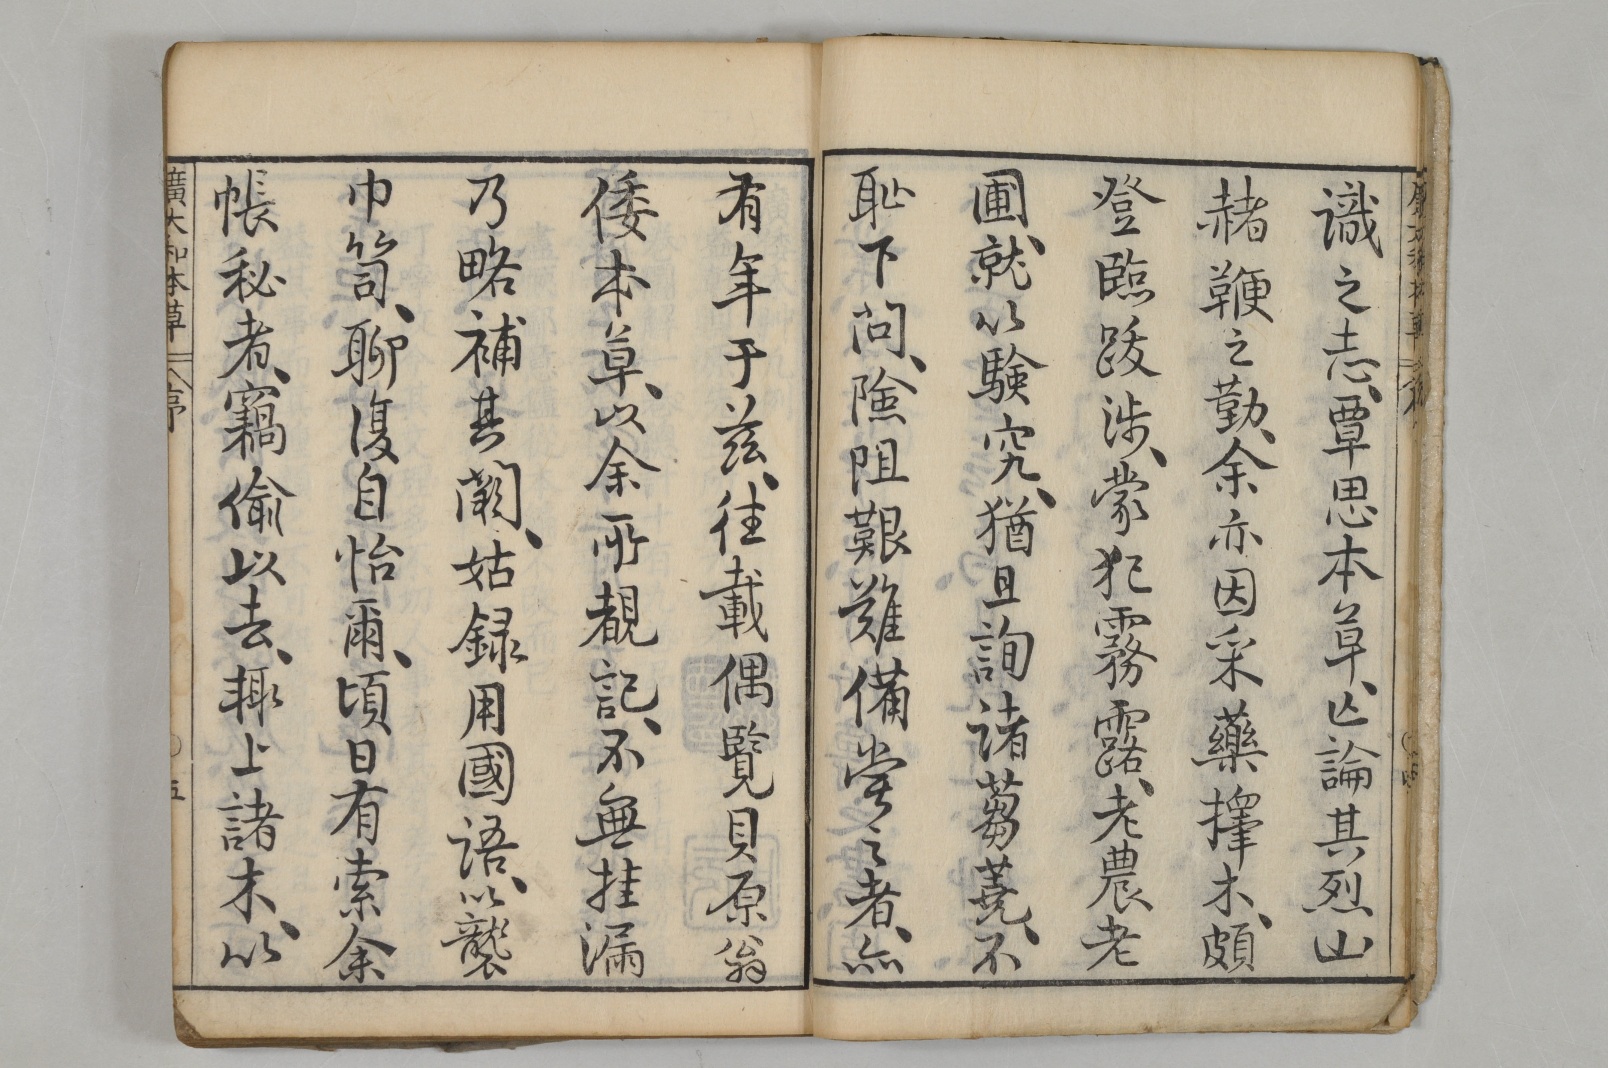 識之志、覃思本草、亡論其烈山
赭鞭之勤、余亦因采藥擇木、頗
登臨跋涉、蒙犯霧露、老農老
圃、就以驗究、猶且詢諸蒭蕘、不
恥下問、險阻艱難備嘗之者、亦
有年于茲、往載偶覽貝原翁
倭本草、以余所覩記、不無挂漏
乃略補其闕、姑録用國語、以襲
巾笥、聊復自怡爾、頃日有索余
帳秘者、竊偷以去、輙上諸木、以
廣大和本草 序 五